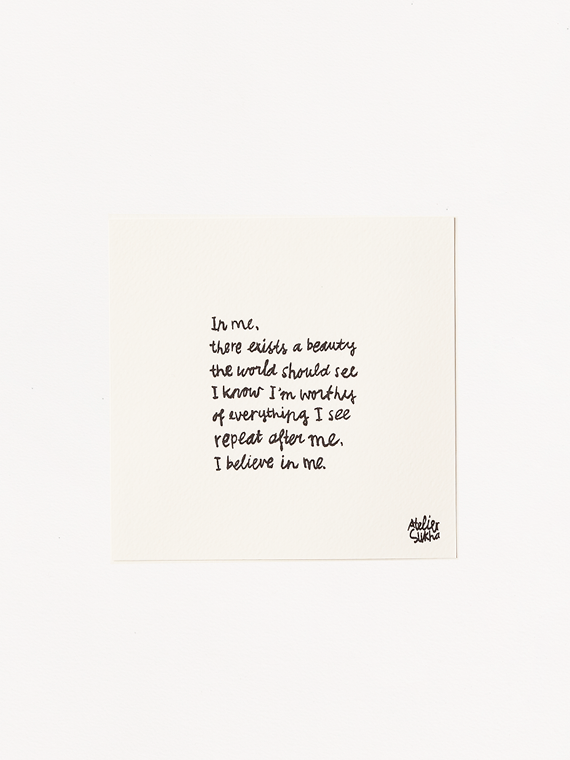 In me,
there exists a beauty
the world should see
I know I'm worthy
of everything I see
repeat after me,
I believe in me.
Atelier
Sukha